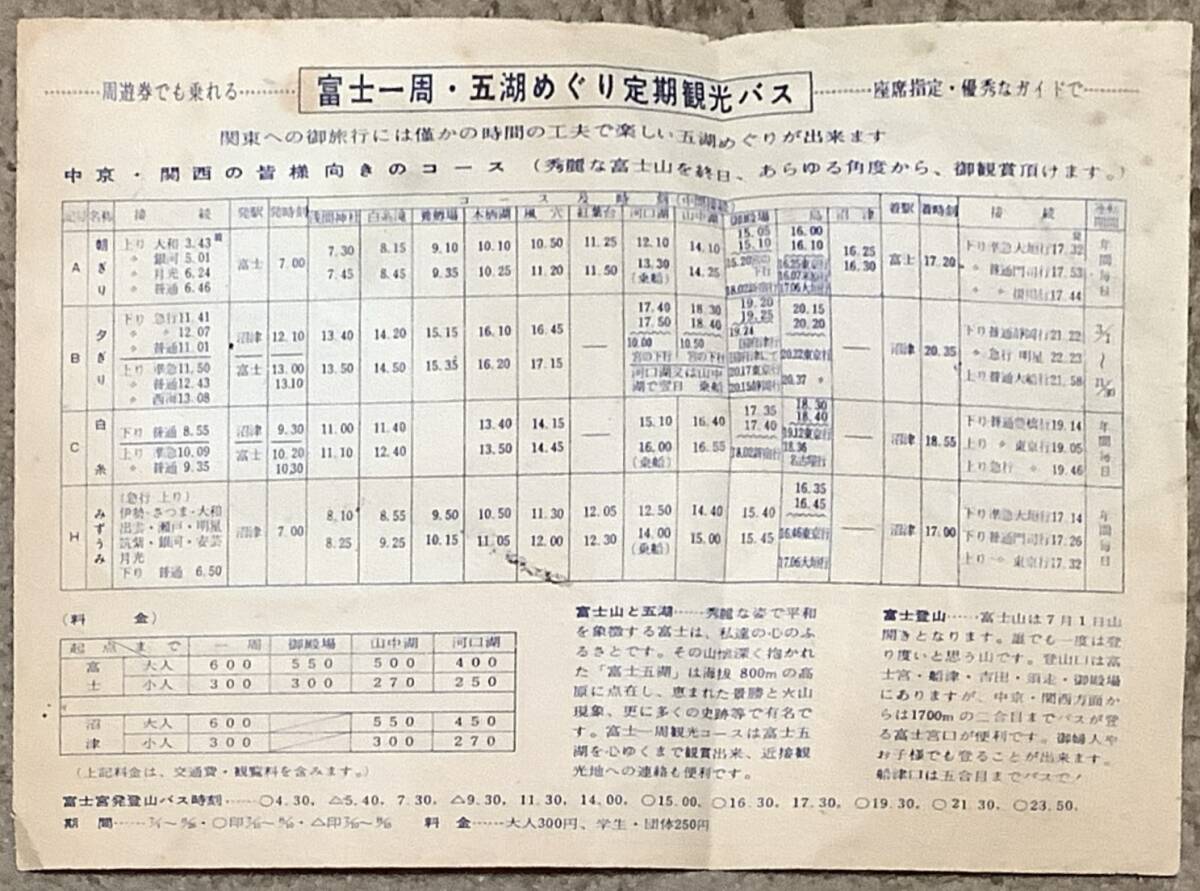 ………周遊券でも乗れる……… 富士一周・五湖めぐり定期観光バス ………座席指定・優秀なガイドで………
関東への御旅行には僅かの時間の工夫で楽しい五湖めぐりが出来ます
中京・関西の皆様向きのコース (秀麗な富士山を終日、あらゆる角度から、御観賞頂けます。)
名称 接続 発駅 発時刻 コース及時刻 着駅 着時刻 接続
浅間神社 白糸滝 養鱒場 本栖湖 風穴 紅葉台 河口湖 山中湖 御殿場 三島 沼津
A 朝ぎり 富士 7.00
上り 大和 3.43
〃 銀河 5.01
〃 月光 6.24
〃 普通 6.46
7.30 8.15 9.10 10.10 10.50 11.25 12.10 14.10 15.05 15.10 16.00 16.10 16.25
7.45 8.45 9.35 10.25 11.20 11.50 13.30 (乗船) 14.25 16.30
富士 17.20
下り準急大垣行17.32
〃 普通門司行17.53
〃 〃 掛川行17.44
年間毎日
B 夕ぎり
下り 急行11.41
〃 〃 12.07
〃 普通11.01
上り 準急11.50
〃 普通12.43
〃 西海13.08
沼津 12.10
富士 13.00
13.10
13.40 14.20 15.15 16.10 16.45 — 17.40 18.30 19.20 20.15
13.50 14.50 15.35 16.20 17.15 17.50 18.40 19.25 20.20 —
10.00 宮の下行 10.50 宮の下行
河口湖又は山中湖で翌日 乗船
19.24
20.17東京行
20.15静岡行
20.22東京行
20.37 〃
沼津 20.35
下り普通静岡行21.22
〃 急行 明星 22.23
上り普通大船行21.58
3/1 〜 11/30
C 白糸
下り 普通 8.55
上り 準急10.09
〃 普通 9.35
沼津 9.30
富士 10.20
10.30
11.00 11.40 13.40 14.15 — 15.10 16.40 17.35 18.30
11.10 12.40 13.50 14.45 16.00 (乗船) 16.55 17.40 18.40 —
18.02新宿行
19.12東京行
18.36
名古屋行
沼津 18.55
下り普通豊橋行19.14
上り 〃 東京行19.05
上り急行 〃 19.46
年間毎日
H みずうみ
(急行 上り)
伊勢・さつま・大和
出雲・瀬戸・明星
筑紫・銀河・安芸
月光
下り 普通 6.50
沼津 7.00
8.10 8.55 9.50 10.50 11.30 12.05 12.50 14.40 15.40 16.35
8.25 9.25 10.15 11.05 12.00 12.30 14.00 (乗船) 15.00 15.45 16.45 —
16.46東京行
17.06大垣行
沼津 17.00
下り準急大垣行17.14
下り普通門司行17.26
上り 〃 東京行17.32
年間毎日
(料金)
起点まで 一周 御殿場 山中湖 河口湖
富士 大人 600 550 500 400
小人 300 300 270 250
沼津 大人 600 550 450
小人 300 300 270
(上記料金は、交通費・観覧料を含みます。)
富士山と五湖……秀麗な姿で平和
を象徴する富士は、私達の心のふ
るさとです。その山懐深く抱かれ
た「富士五湖」は海抜800mの高
原に点在し、恵まれた景勝と火山
現象、更に多くの史跡等で有名で
す。富士一周観光コースは富士五
湖を心ゆくまで観賞出来、近接観
光地への連絡も便利です。
富士登山……富士山は7月1日山
開きとなります。誰でも一度は登
り度いと思う山です。登山口は富
士宮・船津・吉田・須走・御殿場
にありますが、中京・関西方面か
らは1700mの二合目までバスが登
る富士宮口が便利です。御婦人や
お子様でも登ることが出来ます。
船津口は五合目までバスで!
富士宮発登山バス時刻……○4.30, △5.40, 7.30, △9.30, 11.30, 14.00, ○15.00, ○16.30, 17.30, ○19.30, ○21.30, ○23.50,
期間 料金……大人300円、学生・団体250円